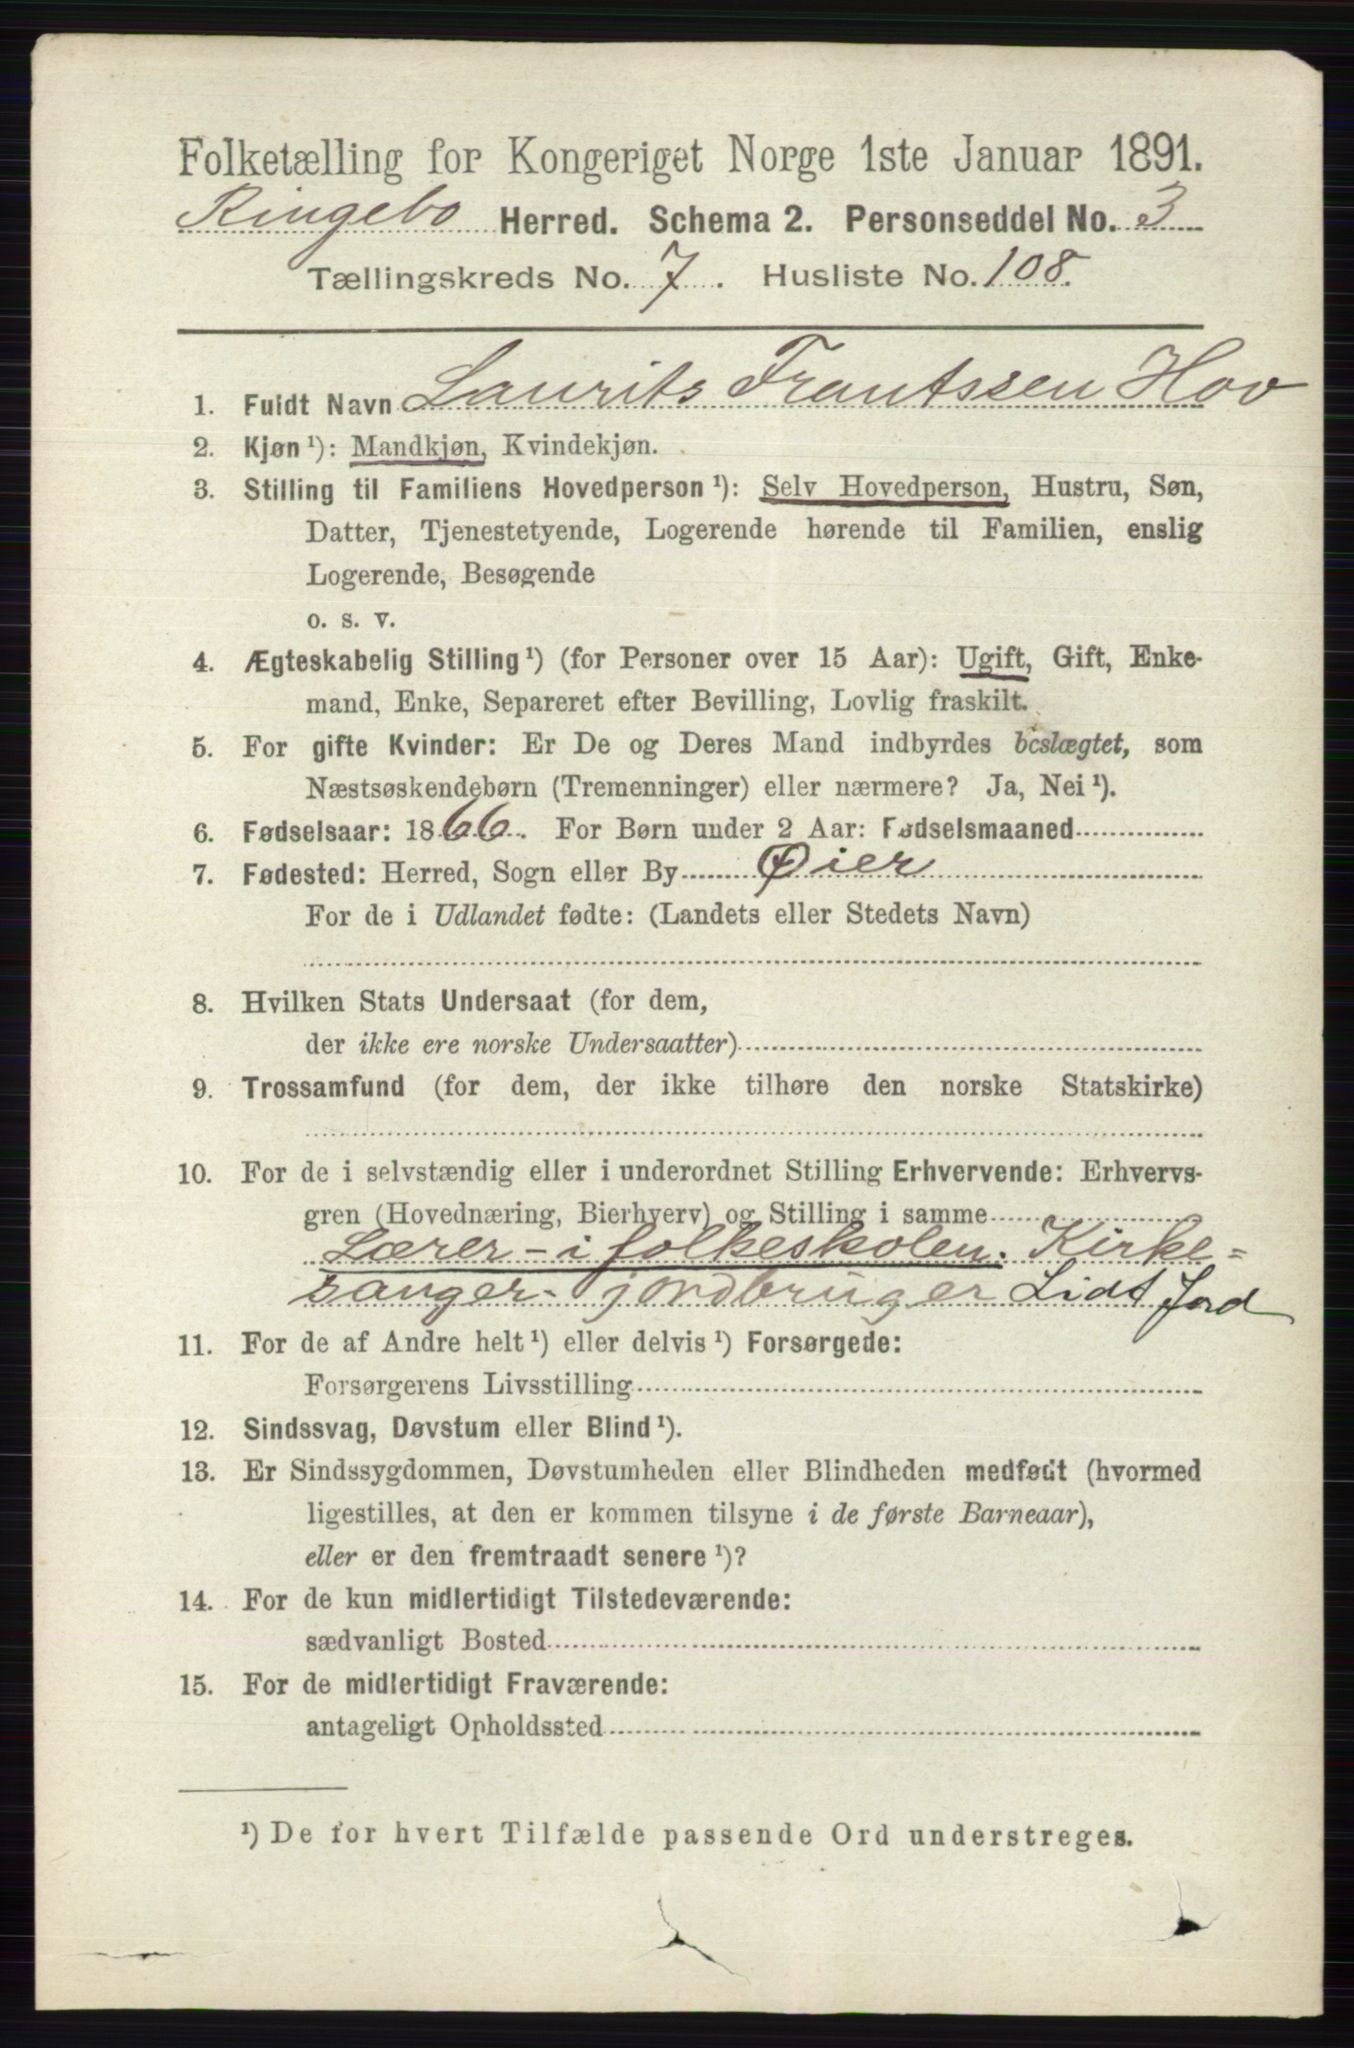 Folketælling for Kongeriget Norge 1ste Januar 1891.
Ringebo Herred. Schema 2. Personseddel No. 3
Tællingskreds No. 7. Husliste No. 108.
1. Fuldt Navn Laurits Frantssen Hov
2. Kjøn ¹): Mandkjøn, Kvindekjøn.
3. Stilling til Familiens Hovedperson ¹): Selv Hovedperson, Hustru, Søn,
Datter, Tjenestetyende, Logerende hørende til Familien, enslig
Logerende, Besøgende
o. s. v.
4. Ægteskabelig Stilling ¹) (for Personer over 15 Aar): Ugift, Gift, Enke-
mand, Enke, Separeret efter Bevilling, Lovlig fraskilt.
5. For gifte Kvinder: Er De og Deres Mand indbyrdes beslægtet, som
Næstsøskendebørn (Tremenninger) eller nærmere? Ja, Nei ¹).
6. Fødselsaar: 1866. For Børn under 2 Aar: Fødselsmaaned
7. Fødested: Herred, Sogn eller By Øier
For de i Udlandet fødte: (Landets eller Stedets Navn)
8. Hvilken Stats Undersaat (for dem,
der ikke ere norske Undersaatter)
9. Trossamfund (for dem, der ikke tilhøre den norske Statskirke)
10. For de i selvstændig eller i underordnet Stilling Erhvervende: Erhvervs-
gren (Hovednæring, Bierhverv) og Stilling i samme
Lærer - i folkeskolen. Kirke=
sanger - jordbruger Lidt Jord
11. For de af Andre helt ¹) eller delvis ¹) Forsørgede:
Forsørgerens Livsstilling
12. Sindssvag, Døvstum eller Blind ¹).
13. Er Sindssygdommen, Døvstumheden eller Blindheden medfødt (hvormed
ligestilles, at den er kommen tilsyne i de første Barneaar),
eller er den fremtraadt senere ¹)?
14. For de kun midlertidigt Tilstedeværende:
sædvanligt Bosted
15. For de midlertidigt Fraværende:
antageligt Opholdssted
¹) De for hvert Tilfælde passende Ord understreges.